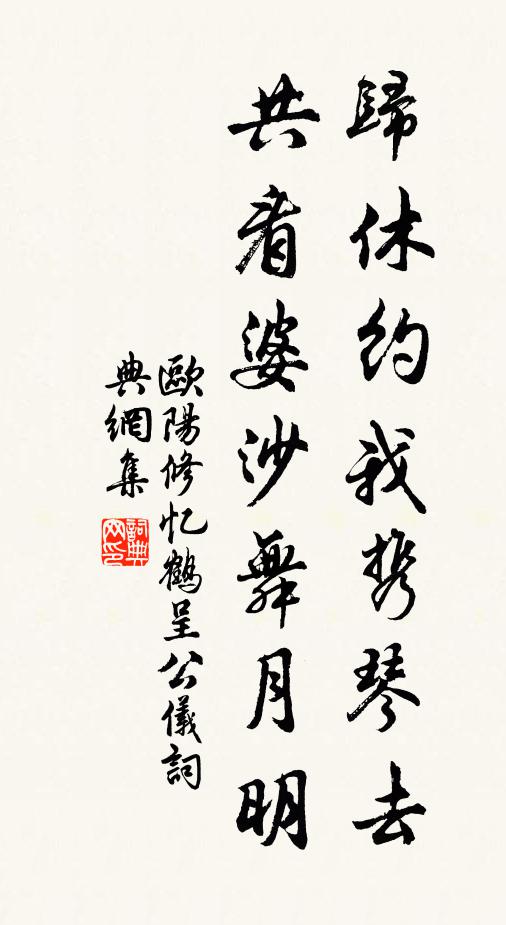 歸休約我携琴去
共看婆沙舞月明
歐陽修忆鶴呈公儀詞
典網集
詞典
网印